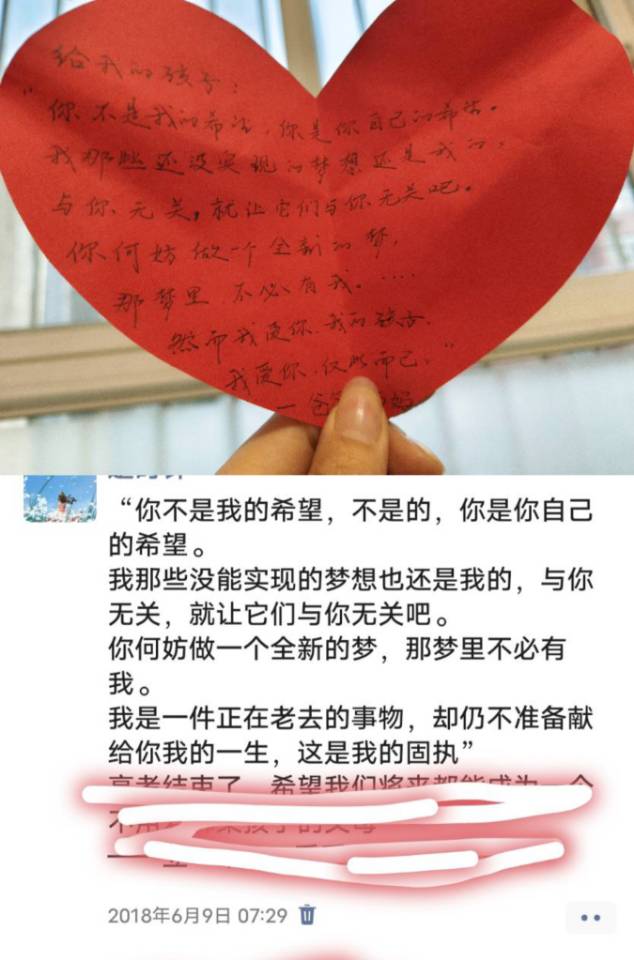 给我的孩子：
“你不是我的希望，你是你自己的希望。
我那些还没实现的梦想还是我的，
与你无关，就让它们与你无关吧。
你何妨做一个全新的梦，
那梦里不必有我。……
然而我爱你，我的孩子，
我爱你，仅此而已。”
“你不是我的希望，不是的，你是你自己
的希望。
我那些没能实现的梦想也还是我的，与你
无关，就让它们与你无关吧。
你何妨做一个全新的梦，那梦里不必有
我。
我是一件正在老去的事物，却仍不准备献
给你我的一生，这是我的固执”
高考结束了，希望我们将来都能成为一个
2018年6月9日 07:29